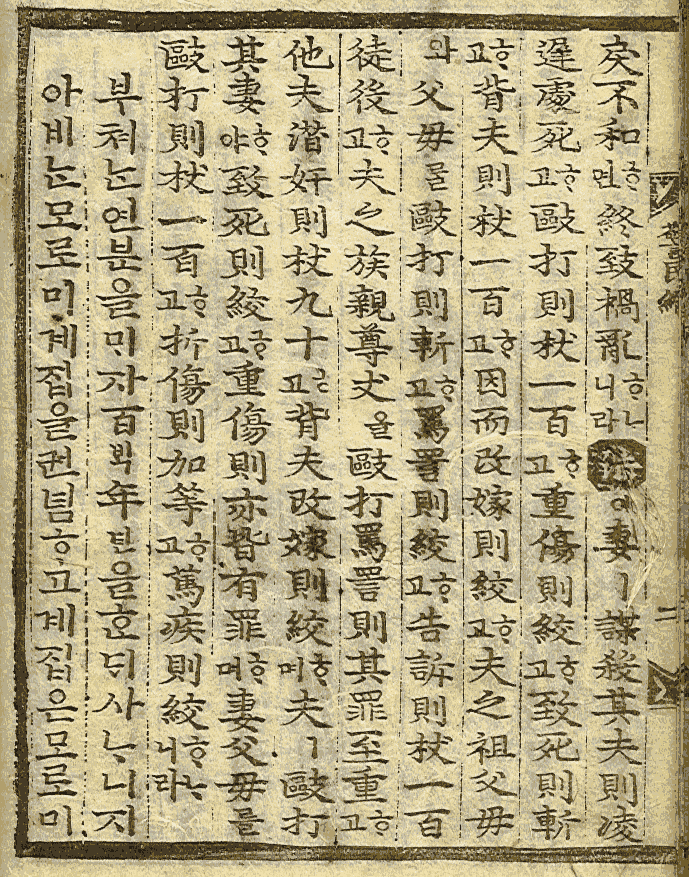 戾不和ᄒᆞ면終致禍亂ᄒᆞᄂᆞ니라法애妻ㅣ謀殺其夫則凌
遲處死ᄒᆞ고毆打則杖一百ᄒᆞ고重傷則絞ᄒᆞ고致死則斬
ᄒᆞ고背夫則杖一百ᄒᆞ고因而改嫁則絞ᄒᆞ고夫之祖父母
와父母를毆打則斬ᄒᆞ고罵詈則絞ᄒᆞ고告訴則杖一百
徒後ᄒᆞ고夫之族親尊丈을毆打罵詈則其罪至重ᄒᆞ고
他夫潛奸則杖九十ᄒᆞ고背夫改嫁則絞ᄒᆞ며夫ㅣ毆打
其妻ᄒᆞ야致死則絞ᄒᆞ고重傷則亦皆有罪ᄒᆞ며妻父母를
毆打則杖一百ᄒᆞ고折傷則加等ᄒᆞ고篤疾則絞ᄒᆞᄂᆞ니라
부쳐ᄂᆞᆫ연분을ᄆᆡ자百ᄇᆡᆨ年년을ᄒᆞᆫᄃᆡ사ᄂᆞ니지
아비ᄂᆞᆫ모로미계집을권렴ᄒᆞ고계집은모로미
警民編
二